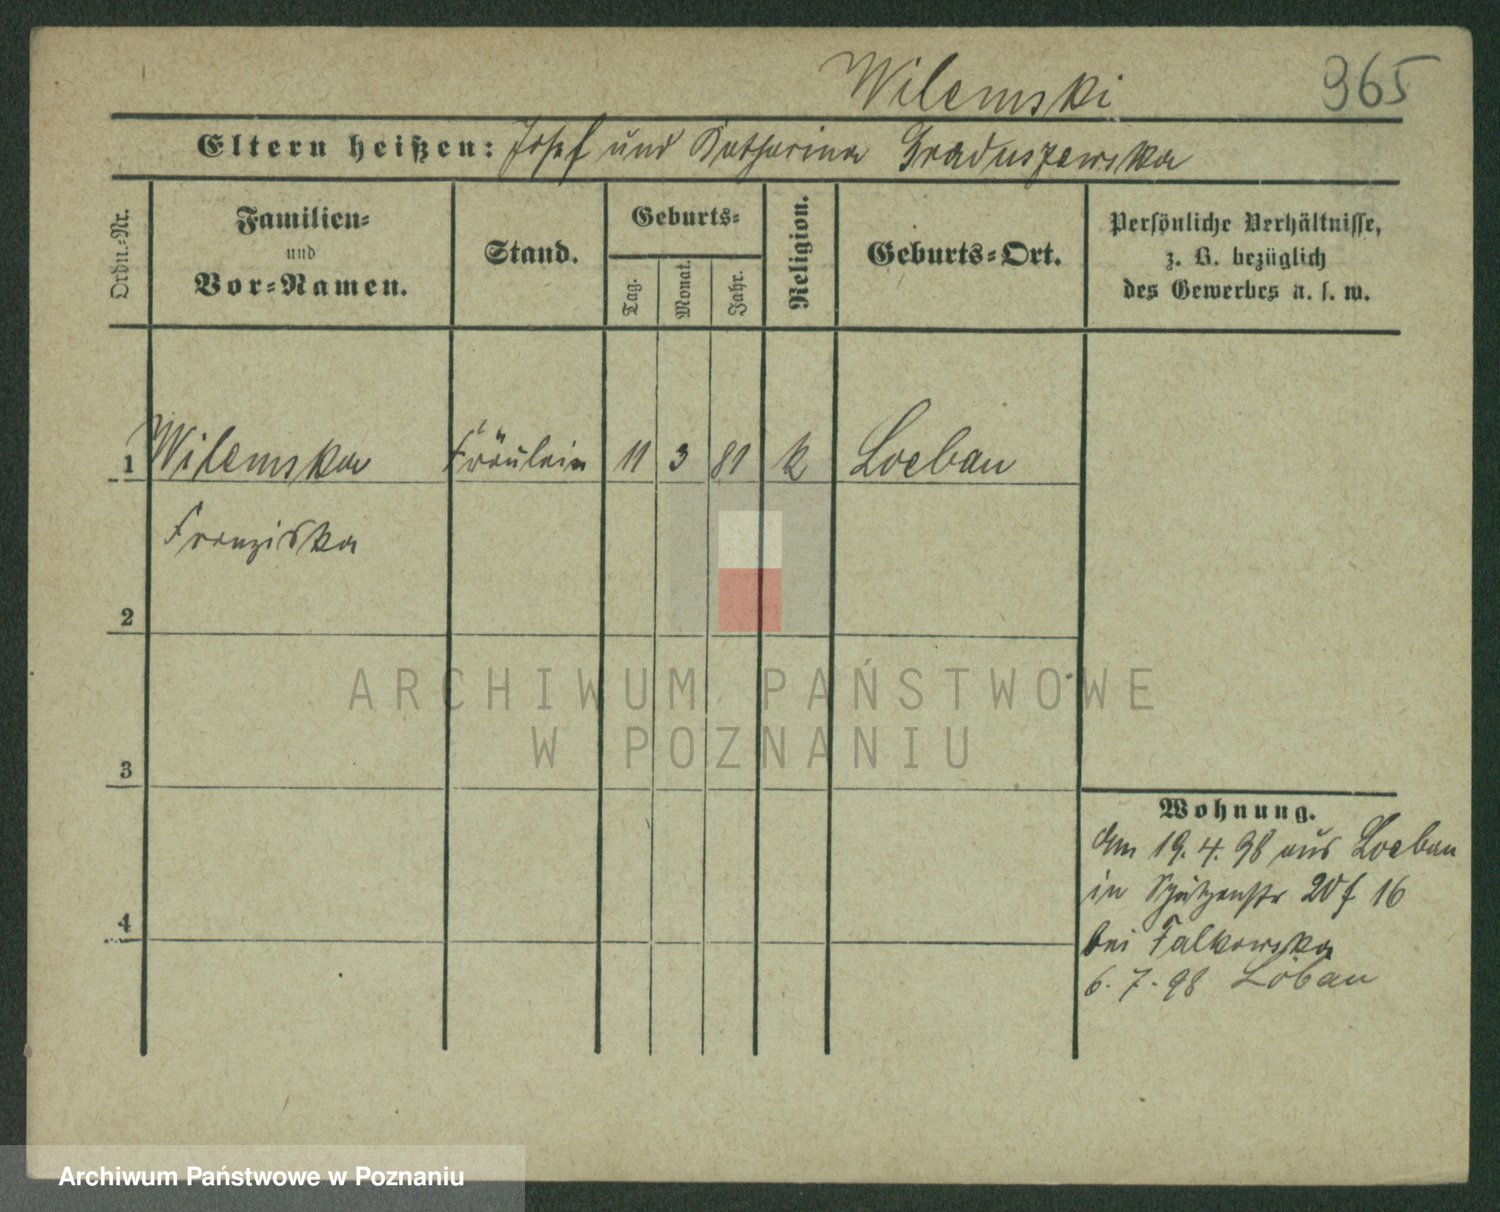 Wilemski 965
Eltern heißen: Josef und Katharina Graduszewska
Ordn.-Nr.
Familien-
und
Vor-Namen.
Stand.
Geburts-
Tag.
Monat.
Jahr.
Religion.
Geburts-Ort.
Persönliche Verhältnisse,
z. B. bezüglich
des Gewerbes u. s. w.
1 Wilemska Fräulein 11 3 81 k Loebau
Franziska
2
3
4
Wohnung.
Am 19.4.98 aus Loebau
in 16
bei Falkowska
6.7.98 Löbau
ARCHIWUM PAŃSTWOWE
W POZNANIU
Archiwum Państwowe w Poznaniu